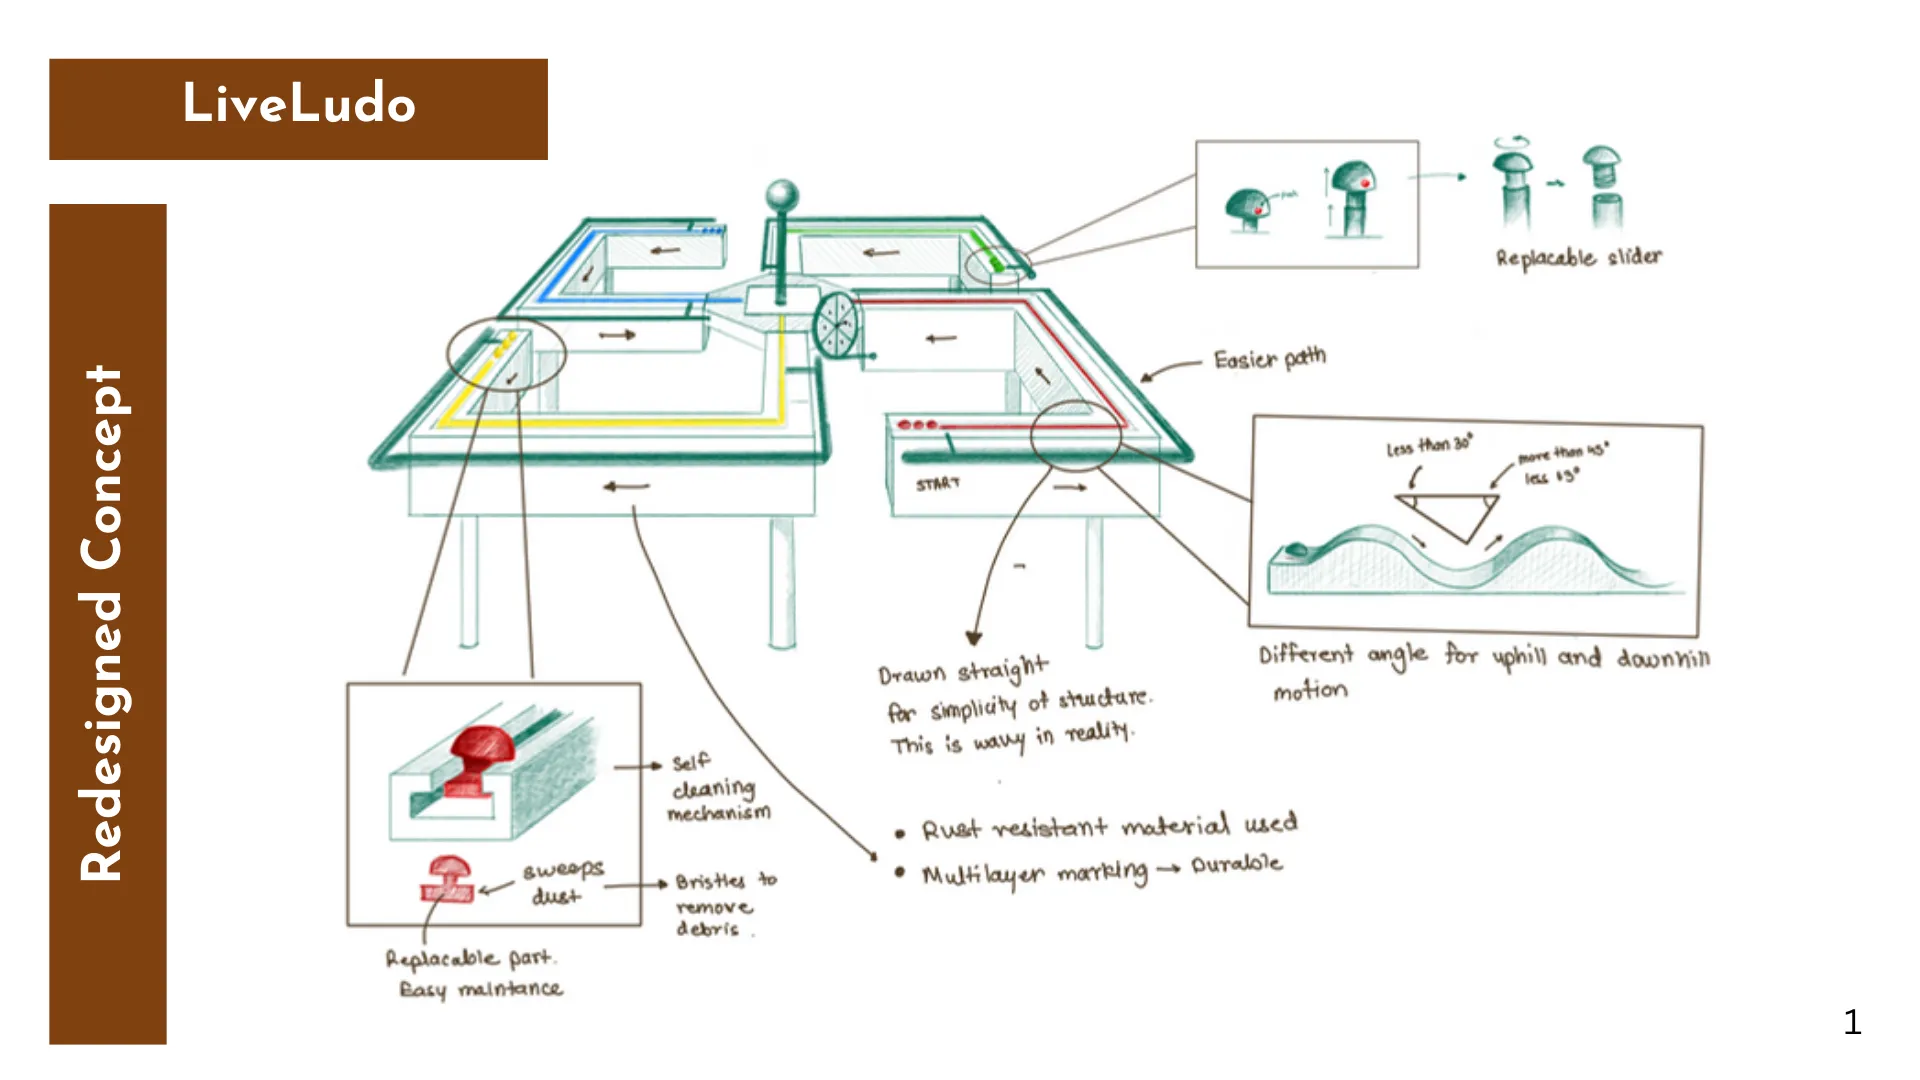 LiveLudo
Redesigned Concept
push
Replacable slider
Easier path
START
Less than 30°
more than 45°
Different angle for uphill and downhill
motion
Drawn straight
for simplicity of structure.
This is wavy in reality.
Self
cleaning
mechanism
sweeps
dust
Bristles to
remove
debris.
Replacable part.
Easy maintance
• Rust resistant material used
• Multilayer marking → Durable
1